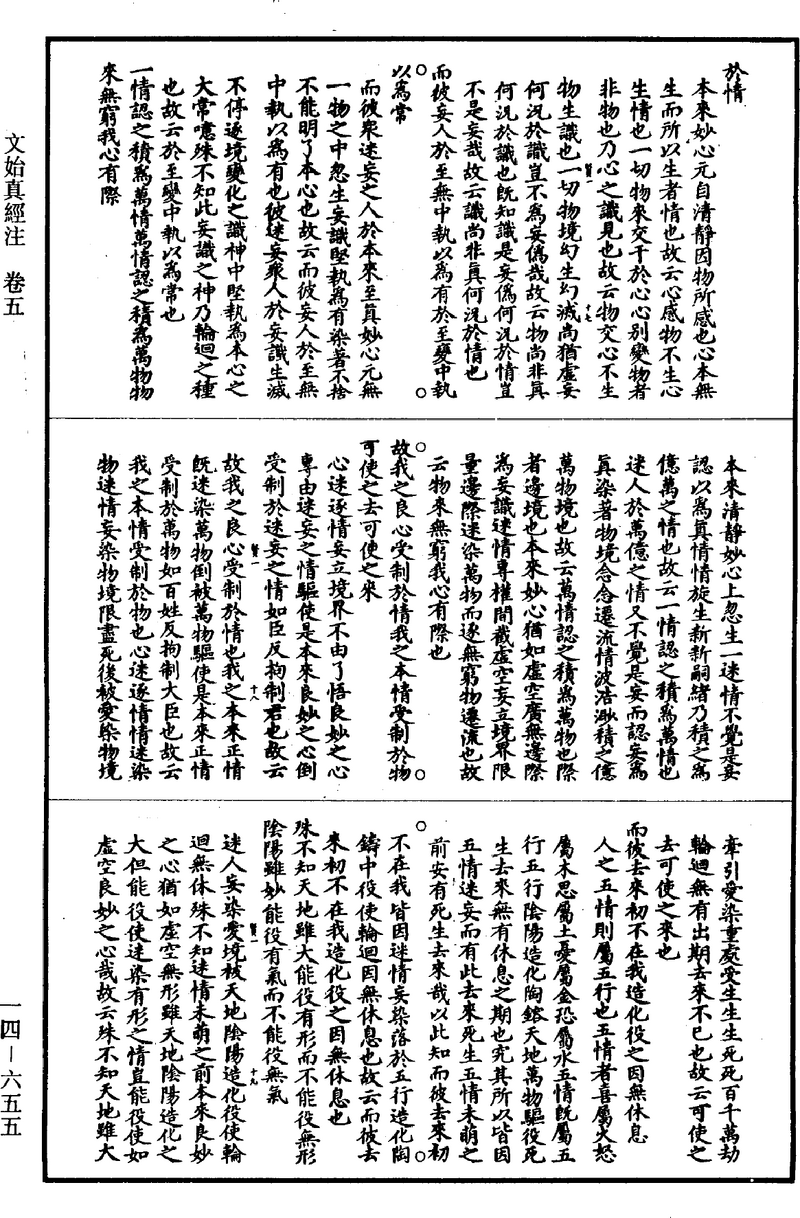 於情
本來妙心元自清靜因物所感也心本無
生而所以生者情也故云心感物不生心
生情也一切物來交干於心心別變物者
非物也乃心之識見也故云物交心不生
物生識也一切物境幻生幻滅尚猶虛妄
何況於識豈不為妄偽哉故云物尚非真
何況於識也既知識是妄偽何況於情豈
不是妄哉故云識尚非真何況於情也
而彼妄人於至無中執以為有於至變中執
以為常
而彼衆迷妄之人於本來至真妙心元無
一物之中忽生妄識堅執為有染著不捨
不能明了本心也故云而彼妄人於至無
中執以為有也彼迷妄衆人於妄識生滅
不停逐境變化之識神中堅執為本心之
大常噫殊不知此妄識之神乃輪迴之種
也故云於至變中執以為常也
一情認之積為萬情萬情認之積為萬物物
來無窮我心有際
本來清靜妙心上忽生一迷情不覺是妄
認以為真情情旋生新新嗣緒乃積之為
億萬之情也故云一情認之積為萬情也
迷人於萬億之情又不覺是妄而認妄為
真染著物境念念遷流情波浩渺積之億
萬物境也故云萬情認之積為萬物也際
者邊境也本來妙心猶如虛空廣無邊際
為妄識迷情專權間截虛空妄立境界限
量邊際迷染萬物而逐無窮物遷流也故
云物來無窮我心有際也
故我之良心受制於情我之本情受制於物
可使之去可使之來
心迷逐情妄立境界不由了悟良妙之心
專由迷妄之情驅使是本來良妙之心倒
受制於迷妄之情如臣反拘制君也故云
故我之良心受制於情也我之本來正情
既迷染萬物倒被萬物驅使是本來正情
受制於萬物如百姓反拘制大臣也故云
我之本情受制於物也心迷逐情情迷染
物迷情妄染物境限盡死後被愛染物境
牽引愛染重處受生生生死死百千萬劫
輪迴無有出期去來不已也故云可使之
去可使之來也
而彼去來初不在我造化役之因無休息
人之五情則屬五行也五情者喜屬火怒
屬木思屬土憂屬金恐屬水五情既屬五
行五行陰陽造化陶鎔天地萬物驅役死
生去來無有休息之期也究其所以皆因
五情迷妄而有此去來死生五情未萌之
前安有死生去來哉以此知而彼去來初
不在我皆因迷情妄染落於五行造化陶
鑄中役使輪迴因無休息也故云而彼去
來初不在我造化役之因無休息也
殊不知天地雖大能役有形而不能役無形
陰陽雖妙能役有氣而不能役無氣
迷人妄染愛境被天地陰陽造化役使輪
迴無休殊不知迷情未萌之前本來良妙
之心猶如虛空無形雖天地陰陽造化之
大但能役使迷染有形之情豈能役使如
虛空良妙之心哉故云殊不知天地雖大
文始真經注　卷五
一四－六五五